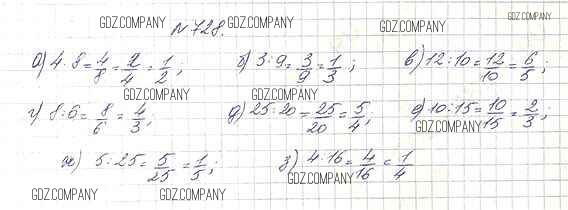 GDZ.COMPANY GDZ.COMPANY GDZ.COMPANY GDZ.COMPANY
№ 728.
а) 4 : 8 = 4/8 = 2/4 = 1/2 ; б) 3 : 9 = 3/9 = 1/3 ; в) 12 : 10 = 12/10 = 6/5 ;
GDZ.COMPANY GDZ.COMPANY
г) 8 : 6 = 8/6 = 4/3 ; д) 25 : 20 = 25/20 = 5/4 ; е) 10 : 15 = 10/15 = 2/3 ;
GDZ.COMPANY
ж) 5 : 25 = 5/25 = 1/5 ; з) 4 : 16 = 4/16 = 1/4
GDZ.COMPANY
GDZ.COMPANY GDZ.COMPANY